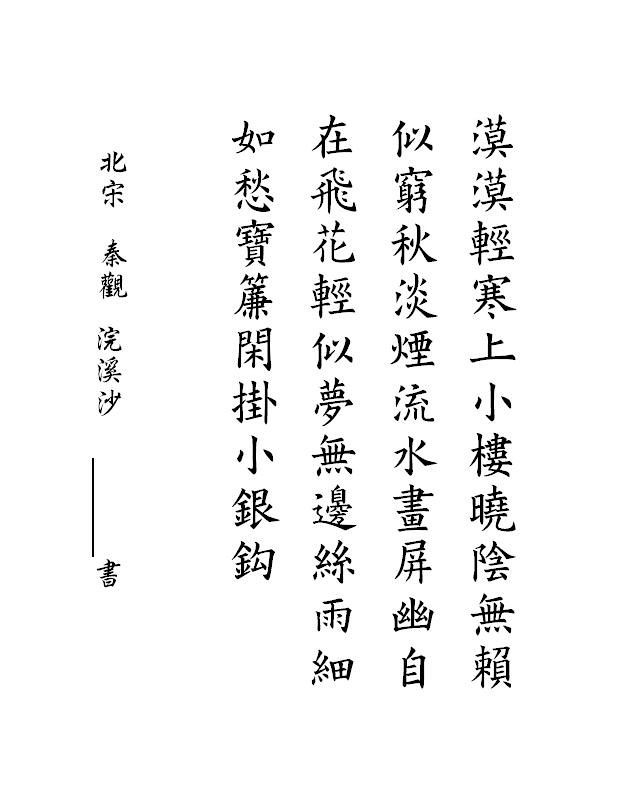 漠漠輕寒上小樓曉陰無賴
似窮秋淡煙流水畫屏幽自
在飛花輕似夢無邊絲雨細
如愁寶簾閑掛小銀鈎
北宋 秦觀 浣溪沙 書